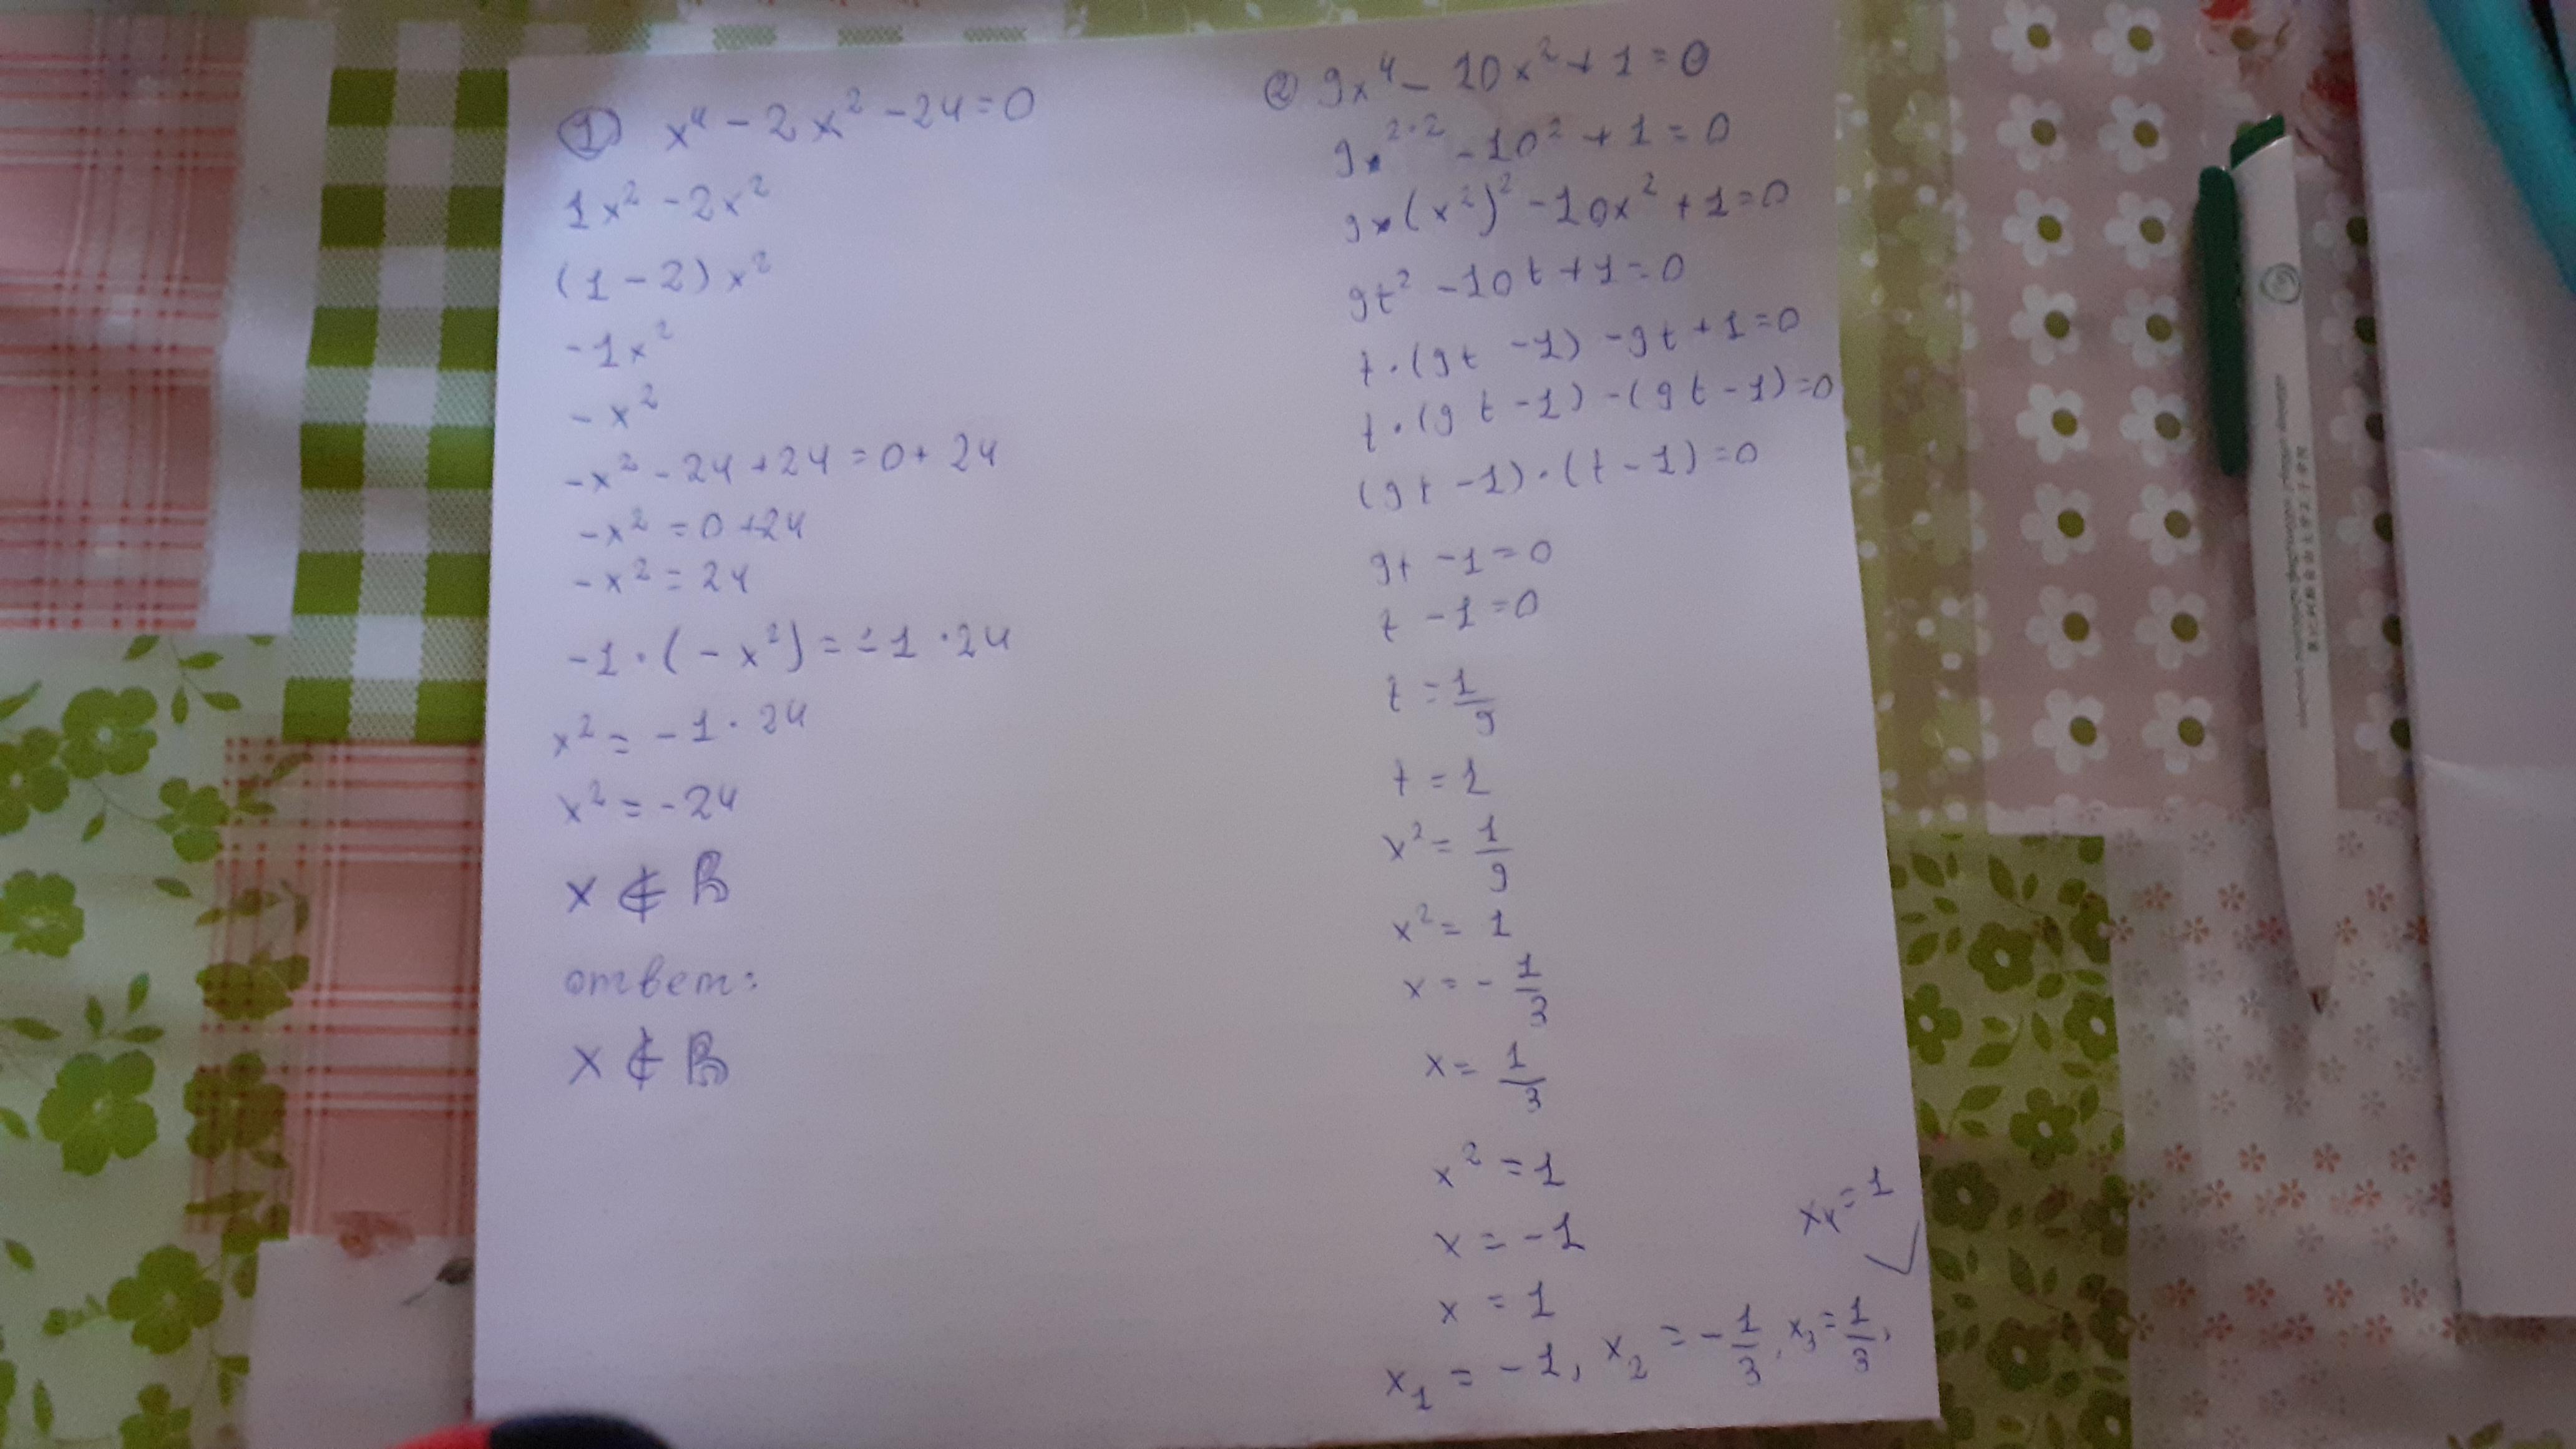 ① x⁴ - 2x² - 24 = 0
1x² - 2x²
(1 - 2) x²
-1x²
-x²
-x² - 24 + 24 = 0 + 24
-x² = 0 + 24
-x² = 24
-1 · (-x²) = -1 · 24
x² = -1 · 24
x² = -24
x ∉ R
ответ:
x ∉ R
② 9x⁴ - 10x² + 1 = 0
9x²·² - 10² + 1 = 0
9 · (x²)² - 10x² + 1 = 0
9t² - 10t + 1 = 0
t · (9t - 1) - 9t + 1 = 0
t · (9t - 1) - (9t - 1) = 0
(9t - 1) · (t - 1) = 0
9t - 1 = 0
t - 1 = 0
t = 1/9
t = 1
x² = 1/9
x² = 1
x = - 1/3
x = 1/3
x² = 1
x = -1
x = 1
x₁ = -1, x₂ = - 1/3, x₃ = 1/3,
x₄ = 1